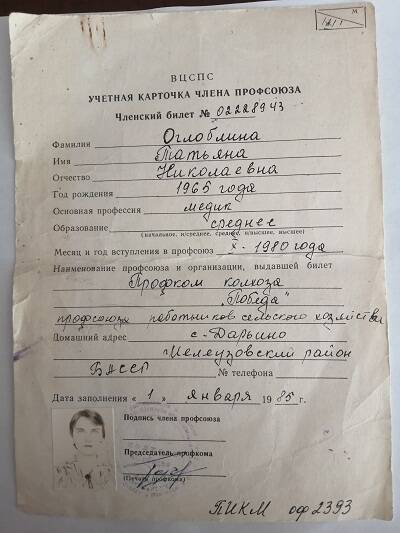 М
ВЦСПС
УЧЕТНАЯ КАРТОЧКА ЧЛЕНА ПРОФСОЮЗА
Членский билет № 02228943
Фамилия Оглоблина
Имя Татьяна
Отчество Николаевна
Год рождения 1965 года
Основная профессия медик
Образование среднее
(начальное, н/среднее, среднее, н/высшее, высшее)
Месяц и год вступления в профсоюз X - 1980 года
Наименование профсоюза и организации, выдавшей билет
Профком колхоза
"Победа"
профсоюза работников сельского хозяйства
Домашний адрес с-Дарьино
Мелеузовский район
БАССР № телефона
Дата заполнения « 1 » января 1985 г.
Подпись члена профсоюза
Председатель профкома
(Печать профкома)
ПИКМ оф 2393